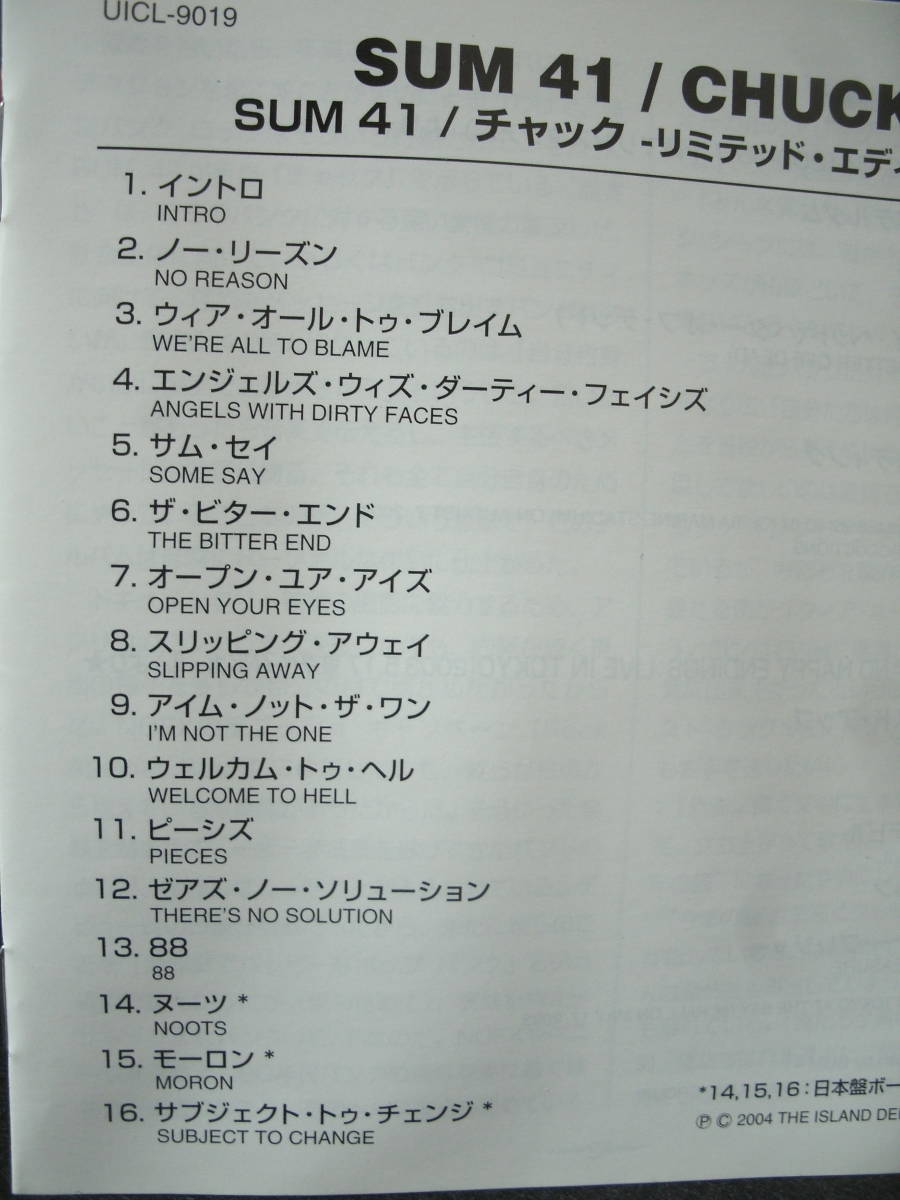 UICL-9019
SUM 41 / CHUCK
SUM 41 / チャック -リミテッド・エディ
1. イントロ
INTRO
2. ノー・リーズン
NO REASON
3. ウィア・オール・トゥ・ブレイム
WE'RE ALL TO BLAME
4. エンジェルズ・ウィズ・ダーティー・フェイシズ
ANGELS WITH DIRTY FACES
5. サム・セイ
SOME SAY
6. ザ・ビター・エンド
THE BITTER END
7. オープン・ユア・アイズ
OPEN YOUR EYES
8. スリッピング・アウェイ
SLIPPING AWAY
9. アイム・ノット・ザ・ワン
I'M NOT THE ONE
10. ウェルカム・トゥ・ヘル
WELCOME TO HELL
11. ピーシズ
PIECES
12. ゼアズ・ノー・ソリューション
THERE'S NO SOLUTION
13. 88
88
14. ヌーツ *
NOOTS
15. モーロン *
MORON
16. サブジェクト・トゥ・チェンジ *
SUBJECT TO CHANGE
*14,15,16：日本盤ボー
℗ © 2004 THE ISLAND DE